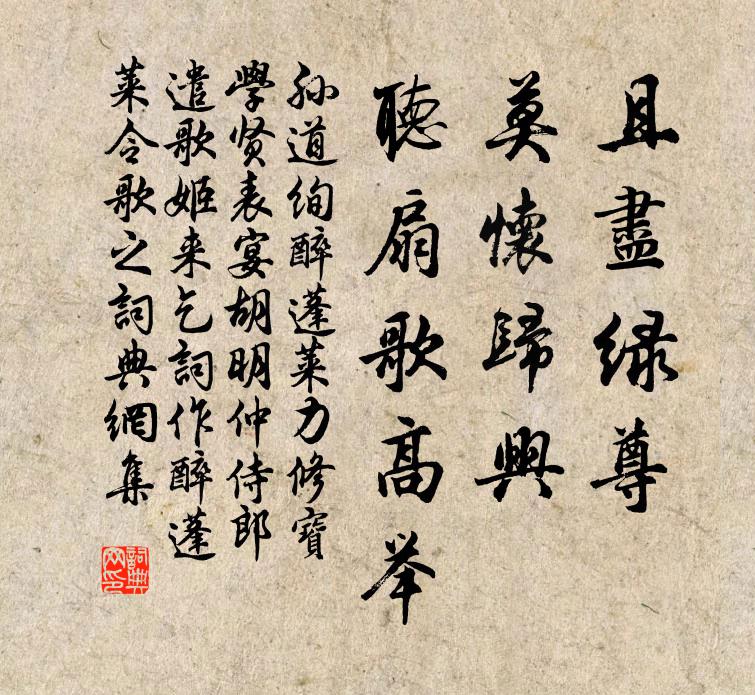 且盡绿尊
莫懷歸興
聽扇歌高举
孙道绚醉蓬莱力修寶
學贤表宴胡明仲侍郎
遣歌姬来乞詞作醉蓬
莱令歌之詞典網集
詞典网印